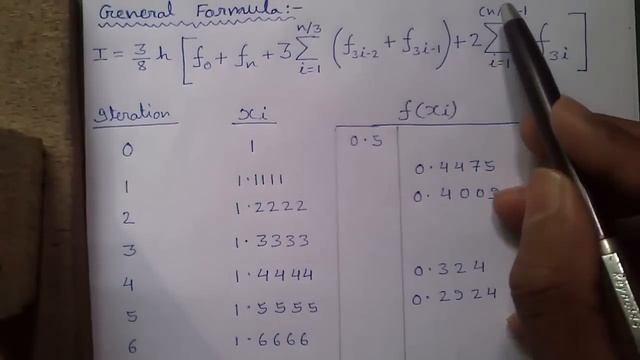 General Formula:-
I = 3/8 h [ f₀ + fₙ + 3 Σ_{i=1}^{n/3} (f_{3i-2} + f_{3i-1}) + 2 Σ_{i=1} f_{3i} ]
Iteration xi f(xi)
0 1 0.5
1 1.1111 0.4475
2 1.2222 0.4009
3 1.3333
4 1.4444 0.324
5 1.5555 0.2924
6 1.6666